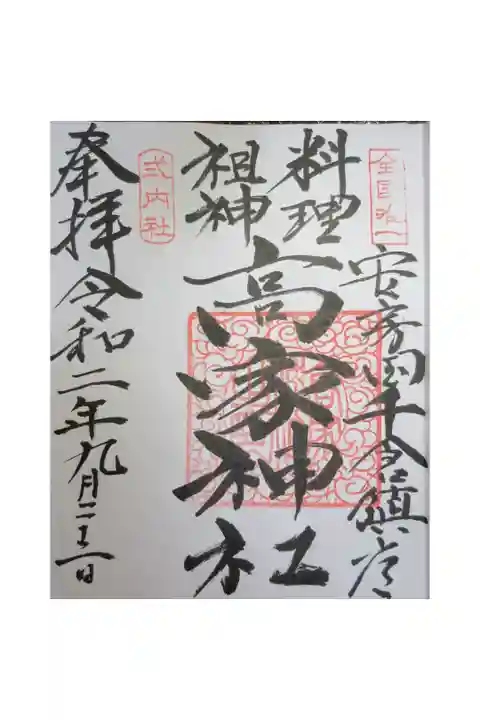 全国唯一
安房国千倉鎮座
料理
祖神
高家神社
式内社
奉拝 令和二年九月二十一日